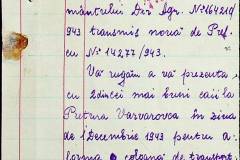 mântului Dir Agr. № 164210/
943 transmis nouă de Pref.
cu № 14.277/943.
Vă rugăm a vă prezenta,
cu 2 dintei mai buni caii la
Pretura Vasvarovca în ziua
de 1 Decembrie 1943 pentru a
forma o coloană de transport